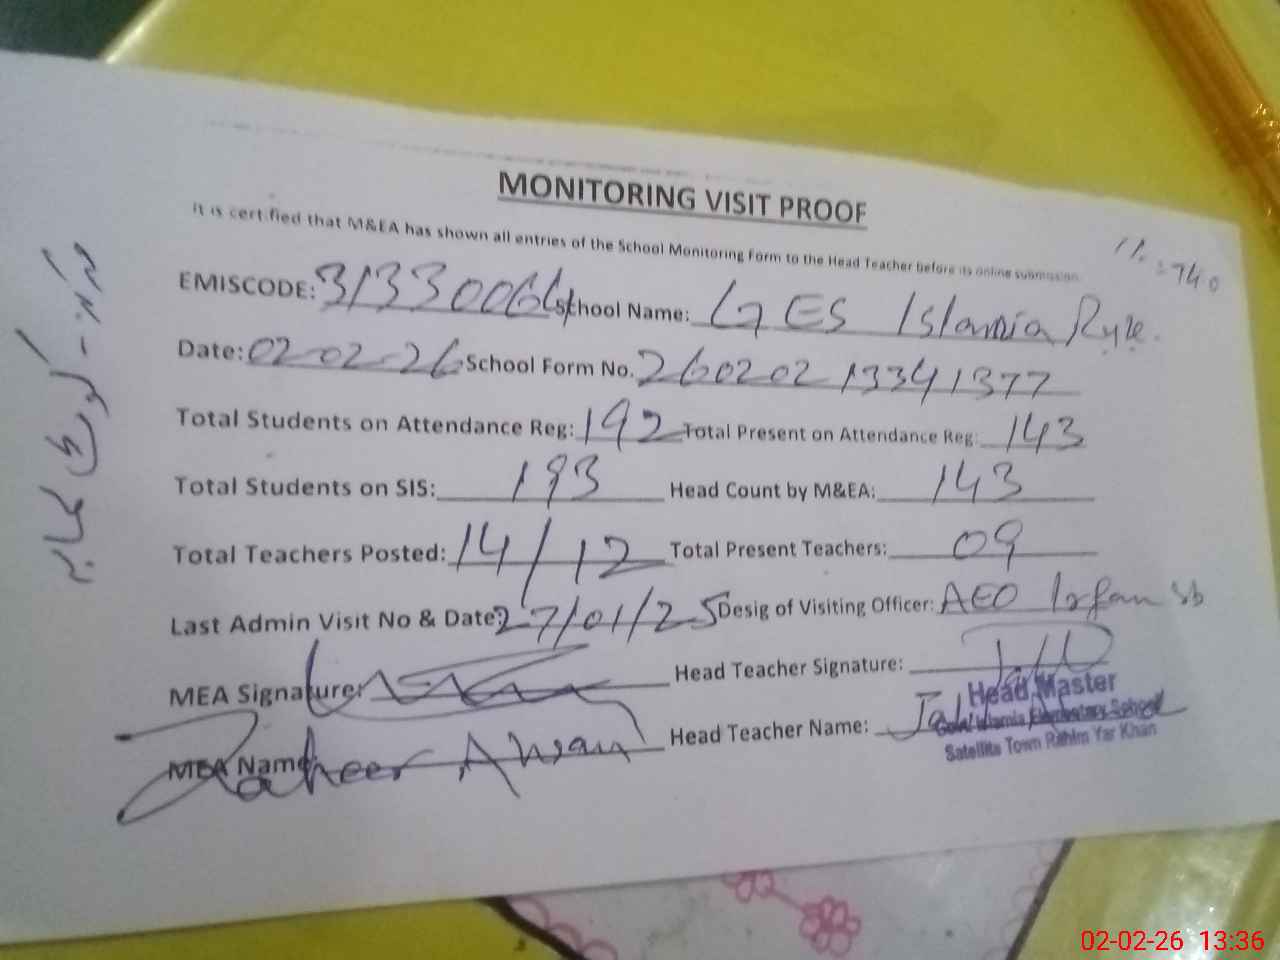 MONITORING VISIT PROOF
It is certified that M&EA has shown all entries of the School Monitoring Form to the Head Teacher before its online submission.
EMISCODE: 31330064 School Name: GES Islamia Ryk.
Date: 02-02-26 School Form No. 260202 13341377
Total Students on Attendance Reg: 192 Total Present on Attendance Reg: 143
Total Students on SIS: 193 Head Count by M&EA: 143
Total Teachers Posted: 14/12 Total Present Teachers: 09
Last Admin Visit No & Date: 27/01/25 Desig of Visiting Officer: AEO Irfan sb
MEA Signature: Head Teacher Signature:
MEA Name: Zaheer Awan Head Teacher Name:
Head Master
Govt. Islamia Elementary School
Satellite Town Rahim Yar Khan
02-02-26 13:36